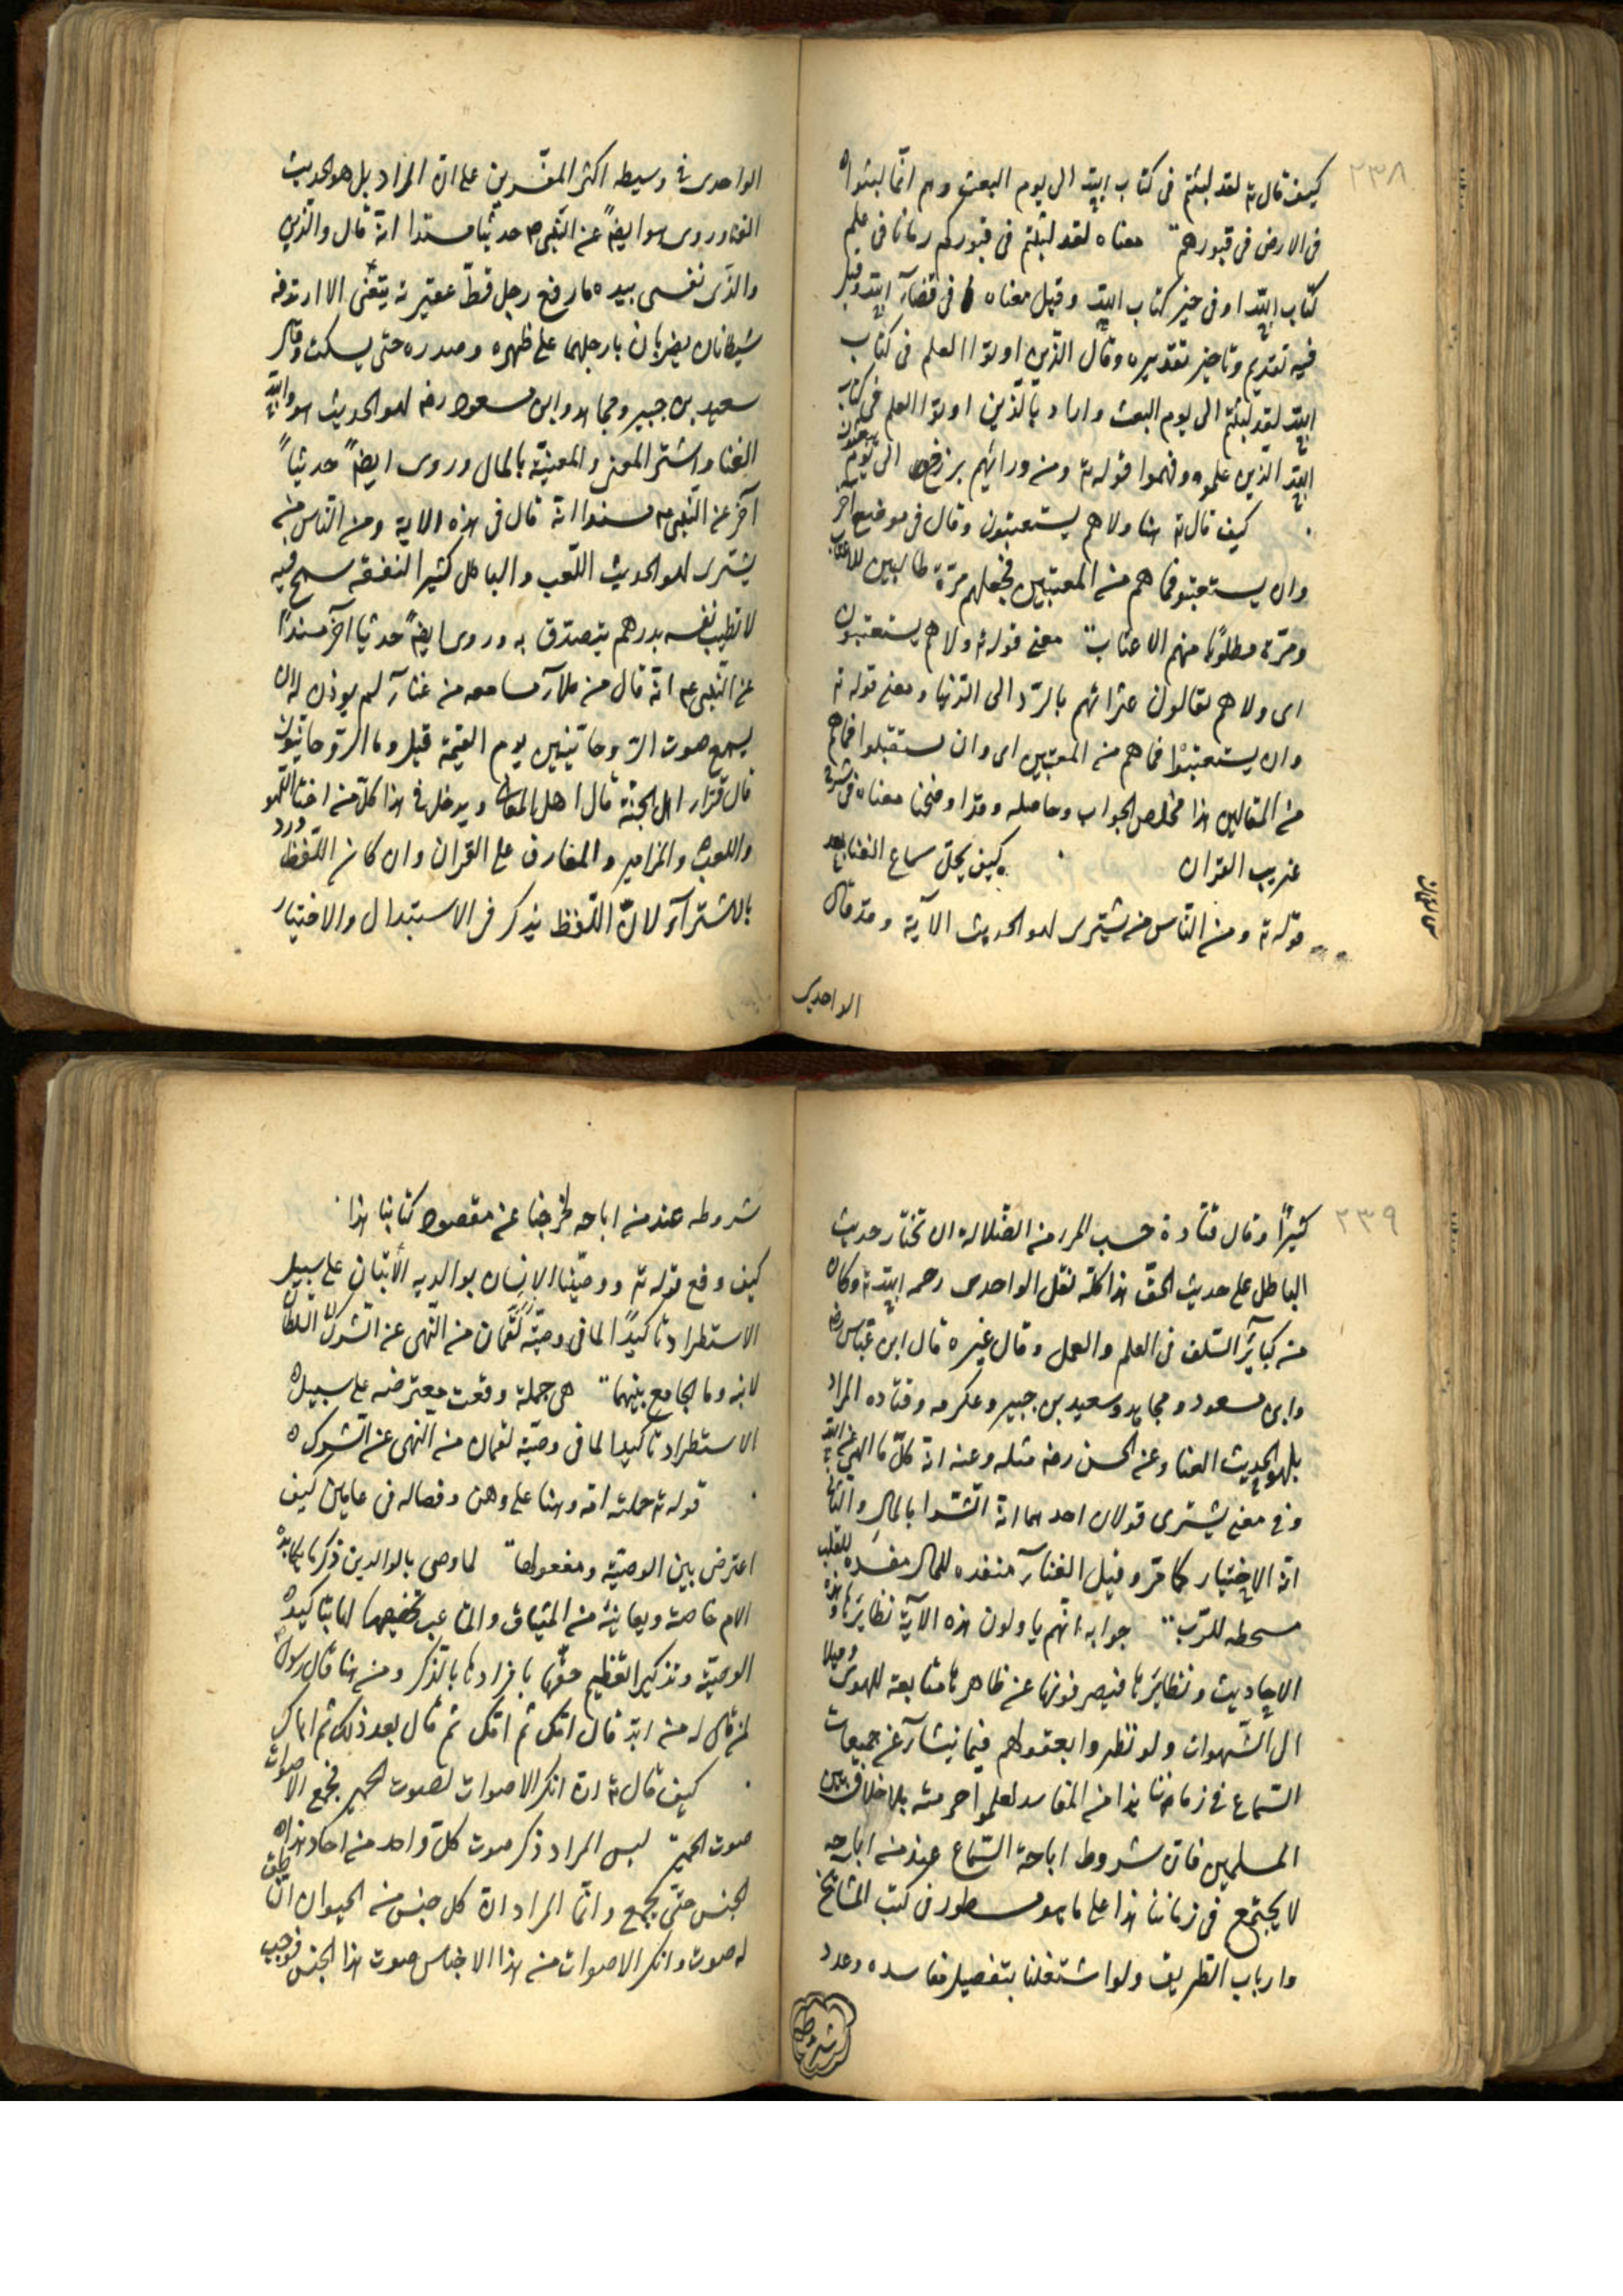 ٢٣٨
كيف قال ته لقد لبثتم فى كتاب الله الى يوم البعث وهم انما لبثوا
فى الارض فى قبورهم معناه لقد لبثتم فى قبوركم زمانا فى علم
كتاب الله او فى خبر كتاب الله وقيل معناه فى قضآء الله وقيل
فيه تقديم وتاخير تقديره وقال الذين اوتوا العلم فى كتاب
الله لقد لبثتم الى يوم البعث واراد بالذين اوتوا العلم فى كتاب
الله الذين علموه وفهموا قوله ته ومن ورائهم برزخ الى يوم يبعثون
كيف قال ته هنا ولا هم يستعتبون وقال فى موضع آخر
وان يستعتبوا فما هم من المعتبين فجعلهم مرّة طالبين للاعتاب
ومرّة مطلوبا منهم الاعتاب معنى قوله ته ولا هم يستعتبون
اى ولا هم يقالون عثراتهم بالرّد الى الدّنيا ومعنى قوله ته
وان يستعتبوا فما هم من المعتبين اى وان يستقيلوا فما هم
من المقالين هذا ملخص الجواب وحاصله وقد اوضحنا معناه فى شرح
غريب القران كيف يحلّ سماع الغنا بعد
قوله ته ومن النّاس من يشترى لهو الحديث الآية وقد قال
الواحدى
الواحدى فى وسيطه اكثر المفسّرين على انّ المراد بلهو الحديث
الغنا وروى هو ايضاً عن النّبى م حديثا مسندا انّه قال والذى
والذى نفسى بيده ما رفع رجل قطّ عقيرته يتغنّى الا ارتدفه
شيطانان يضربان بارجلهما على ظهره وصدره حتى يسكت وقال
سعيد بن جبير ومجاهد وابن مسعود رضه لهو الحديث هو والله
الغنا واشترا المغنى والمغنيّة بالمال وروى ايضاً حديثاً
آخر عن النّبى عم مسندا انّه قال فى هذه الاية ومن النّاس من
يشترى لهو الحديث اللّعب والباطل كثير النفقه سمح فيه
لا تطيب نفسه بدرهم يتصدّق به وروى ايضاً حديثا آخر مسنداً
عن النّبى عم انّه قال من ملآ مسامعه من غنآء لم يوذن له ان
يسمع صوت الرّوحانيّين يوم القيمة قيل وما الرّوحانيّون
قال قرّاء اهل الجنّة قال اهل المعانى ويدخل فى هذا كلّ من اختار اللّهو
واللعب والمزامير والمعازف على القران وان كان اللّفظ ورد
بالاشترآء لانّ اللّفظ يذكر فى الاستبدال والاختيار
٢٣٩
كثيراً وقال قتادة حسب المرء من الضّلالة ان يختار حديث
الباطل على حديث الحقّ هذا كلّه نقل الواحدى رحمه الله ته وكان
من كبآئر السّلف فى العلم والعمل وقال غيره قال ابن عبّاس رضه
وابن مسعود ومجاهد وسعيد بن جبير وعكرمه وقتاده المراد
بلهو الحديث الغنا وعن الحسن رضه مثله وعنه انّه كلّ ما الهى عن الله
وفى معنى يشترى قولان احدهما انّه الشرا بالمال والثانى
انّه الاختيار كما مرّ وقيل الغنآء منفده للمال مفسده للقلب
مسخطه للرّب جوابه انّهم ياولون هذه الآية نظايرها وهذه
الاحاديث ونظايرها فيصرفونها عن ظاهرها متابعة للهوى وميلا
الى الشّهوات ولو نظروا بعقولهم فيما ينشآء عن جمعيات
السّماع فى زماننا هذا من المفاسد لعلموا حرمته بلا خلاف بين
المسلمين فانّ شروط اباحة السّماع عند من اباحه
لا يجتمع فى زماننا هذا على ما هو مسطور فى كتب المشايخ
وارباب الطّريق ولو اشتغلنا بتفصيل مفاسده وعدد
شروطه
شروطه عند من اباحه لخرجنا عن مقصود كتابنا هذا
كيف وقع قوله ته ووصّينا الانسان بوالديه الآيتان على سبيل
الاستطراد تاكيداً لما فى وصيّة لقمان من النّهى عن الشّرك
لابنه وما الجامع بينهما هى جملة وقعت معترضه على سبيل
الاستطراد تاكيدا لما فى وصيّة لقمان من النهى عن الشّرك
قوله ته حملته امّه وهنا على وهن وفصاله فى عامين كيف
اعترض بين الوصيّه ومفعولها لما وصى بالوالدين ذكر ما يكابده
الام خاصة ويعانيه من المشاق والمتاعب تخصيصا لها بتاكيد
الوصيّة وتذكير التعظيم حقّها بافرادها بالذكر ومن هنا قال رسول
لمن قال له من ابرّ قال امّك ثم امّك ثم قال بعد ذلك ثم اباك
كيف قال ته انّ انكر الاصوات لصوت الحمير فجمع الاصوات
صوت الحمير ليس المراد ذكر صوت كلّ واحد من احاد هذا
الجنس حتّى يجمع وانّما المراد انّ كل جنس من الحيوان الناطق
له صوت وانكر الاصوات من هذا الاجناس صوت هذا الجنس فوجب